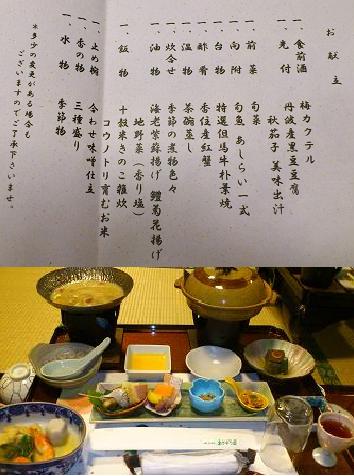 お献立
一、食前酒　梅カクテル
一、先付　丹波産黒豆豆腐
秋茄子　美味出汁
一、前菜　旬菜
一、向附　旬魚　あしらい一式
一、台物　特選但馬牛朴葉焼
一、酢肴　香住産紅蟹
一、温物　茶碗蒸し
一、炊合せ　季節の煮物色々
一、油物　海老紫蘇揚げ　鱧菊花揚げ
地野菜（香り塩）
一、飯物　十穀米きのこ雑炊
コウノトリ育むお米
一、止め椀　合わせ味噌仕立
一、香の物　三種盛り
一、水物　季節物
＊多少の変更がある場合も
ございますのでご了承下さいませ。